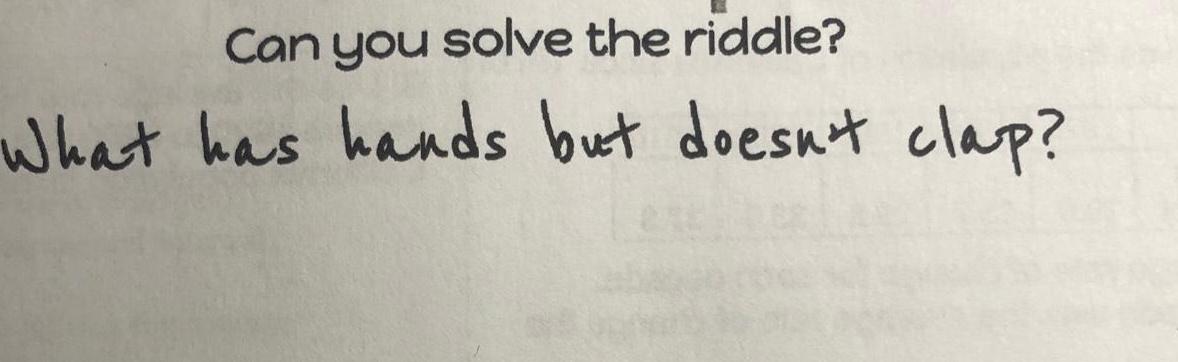 Can you solve the riddle?
What has hands but doesnt clap?